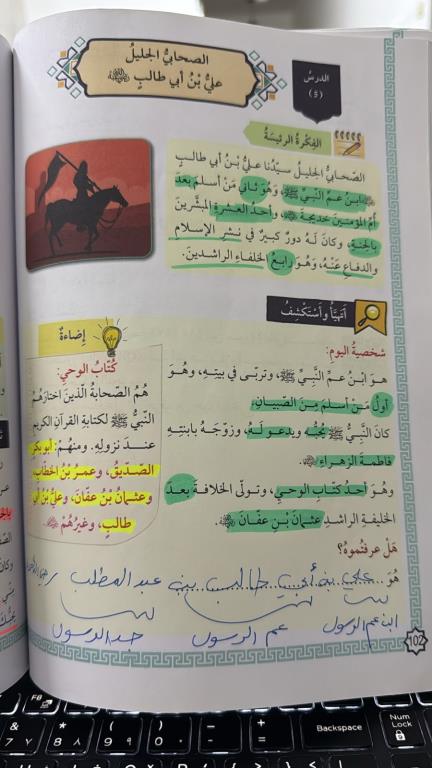 الصحابيُّ الجليلُ
عليُّ بْنُ أبي طالبٍ
الدرسُ
(5)
الفِكْرَةُ الرَّئيسَةُ
الصّحابيُّ الجليلُ سيّدُنا عليُّ بْنُ أبي طالبٍ
ابنُ عمِّ النبيِّ ﷺ، وهُوَ ثاني مَنْ أسلمَ بعدَ
أمِّ المؤمنينَ خديجةَ، وأحدُ العشرةِ المبشَّرينَ
بالجنةِ، وكانَ لهُ دورٌ كبيرٌ في نشرِ الإسلامِ
والدفاعِ عَنْهُ، وهُوَ رابعُ الخلفاءِ الراشدينَ.
أتهيَّأُ وأَسْتَكْشِفُ
شخصيةُ اليومِ:
هوَ ابنُ عمِّ النبيِّ ﷺ، وتربّى في بيتِهِ، وهُوَ
أولُ مَنْ أسلمَ مِنَ الصّبيانِ.
كانَ النَّبيُّ ﷺ يُحبُّهُ ويدعو لَهُ، وزوّجَهُ بابنتِهِ
فاطمةَ الزهراءِ.
وهُوَ أحدُ كُتّابِ الوحيِ، وتولّى الخلافةَ بعدَ
الخليفةِ الراشدِ عثمانَ بْنِ عفّانَ.
هَلْ عرفتُموهُ؟
هُوَ علي بن أبي طالب بن عبد المطلب
ابن عم الرسول عم الرسول جد الرسول
إضاءةٌ
كُتّابُ الوحيِ:
هُمُ الصّحابةُ الّذينَ اختارَهُمُ
النبيُّ ﷺ لكتابةِ القرآنِ الكريمِ
عندَ نزولِهِ. ومنهُمْ: أبو بكرٍ
الصّدّيقُ، وعمرُ بْنُ الخطابِ،
وعثمانُ بْنُ عفانَ، وعليُّ بْنُ أبي
طالبٍ، وغيرُهُمْ
102
F8
Backspace
Num
Lock
&
*
(
)
_
+
7 ٧
8 ٨
9 ٩
0 ٠
-
=